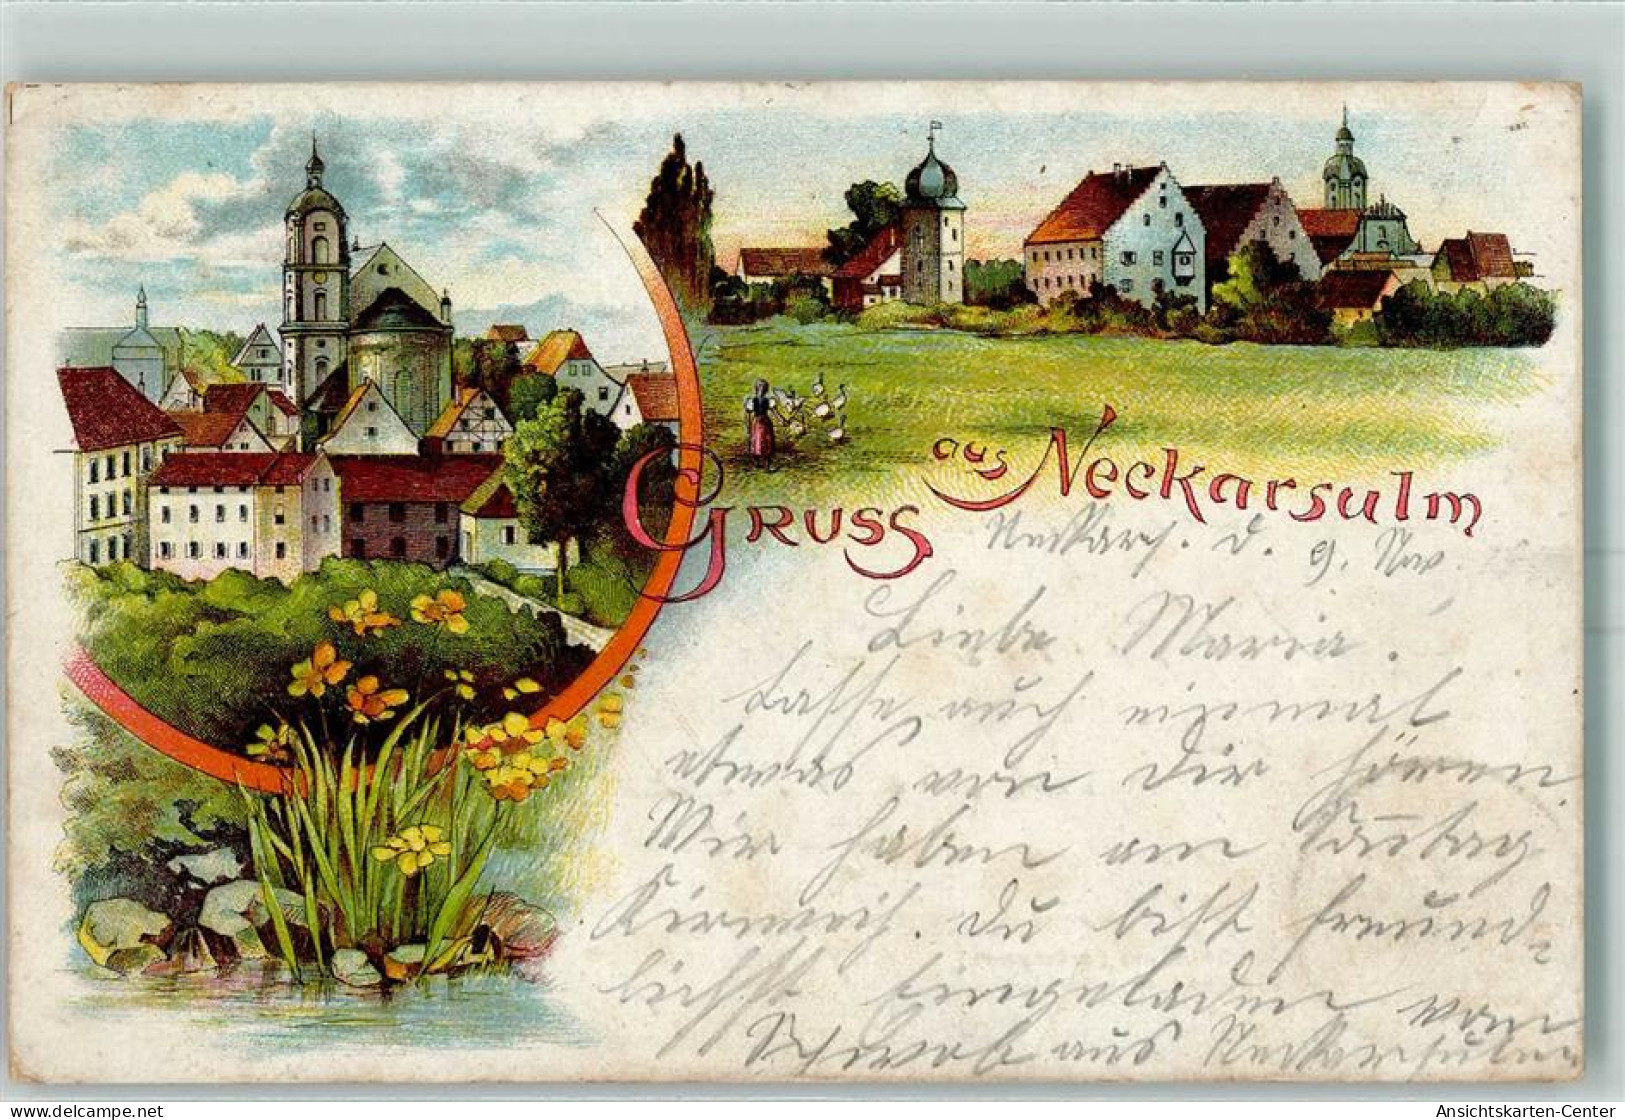 Gruss aus Neckarsulm
Neckars. d. 9. Nov.
Liebe Maria!
Lasse auch einmal
etwas von Dir hören.
Wir haben am Sonntag
Kirchweih. Du bist freund-
lichst Eingeladen von
Schwab aus Neckarsulm
delcampe.net
Ansichtskarten-Center